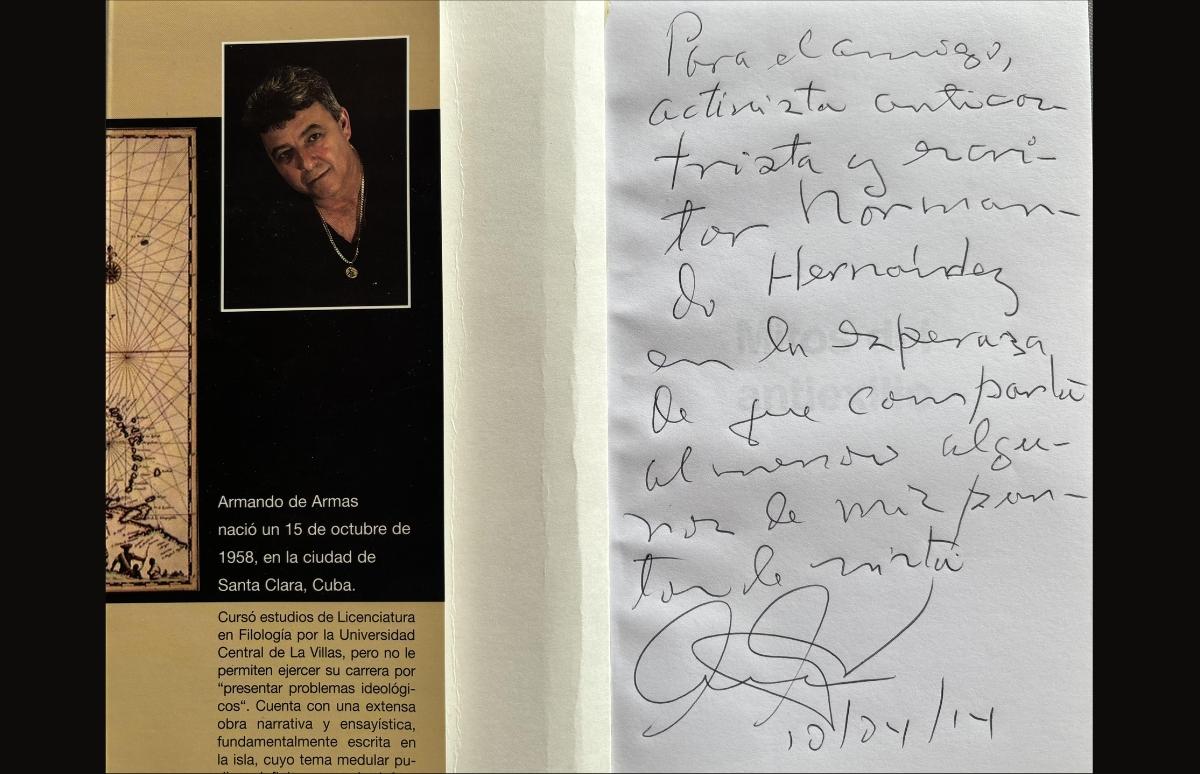 Armando de Armas
nació un 15 de octubre de
1958, en la ciudad de
Santa Clara, Cuba.
Cursó estudios de Licenciatura
en Filología por la Universidad
Central de La Villas, pero no le
permiten ejercer su carrera por
“presentar problemas ideológi-
cos“. Cuenta con una extensa
obra narrativa y ensayística,
fundamentalmente escrita en
la isla, cuyo tema medular pu-
Para el amigo,
activista anticas
trista y escri-
tor Norman-
do Hernández
en la esperaza
de que comparta
al menos algu-
nos de mis pun-
tos de vista
10/04/14